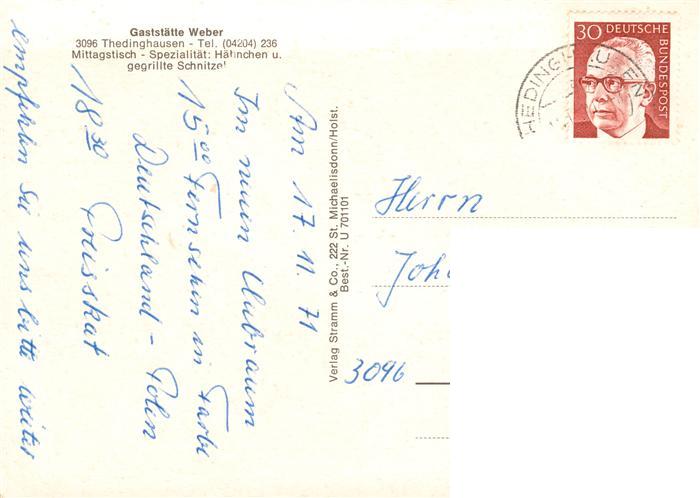 Gaststätte Weber
3096 Thedinghausen - Tel. (04204) 236
Mittagstisch - Spezialität: Hähnchen u.
gegrillte Schnitzel
Am 17. 11. 71
Im neuen Clubraum
15.00 Fernsehen in Farbe
Deutschland - Polen
18 30 Preisskat
empfehlen Sie uns bitte weiter
Verlag Stramm & Co., 222 St. Michaelisdonn/Holst.
Best.-Nr. U 701101
30 DEUTSCHE
BUNDESPOST
HEDINGHAUSEN
Herrn
Joh
3096